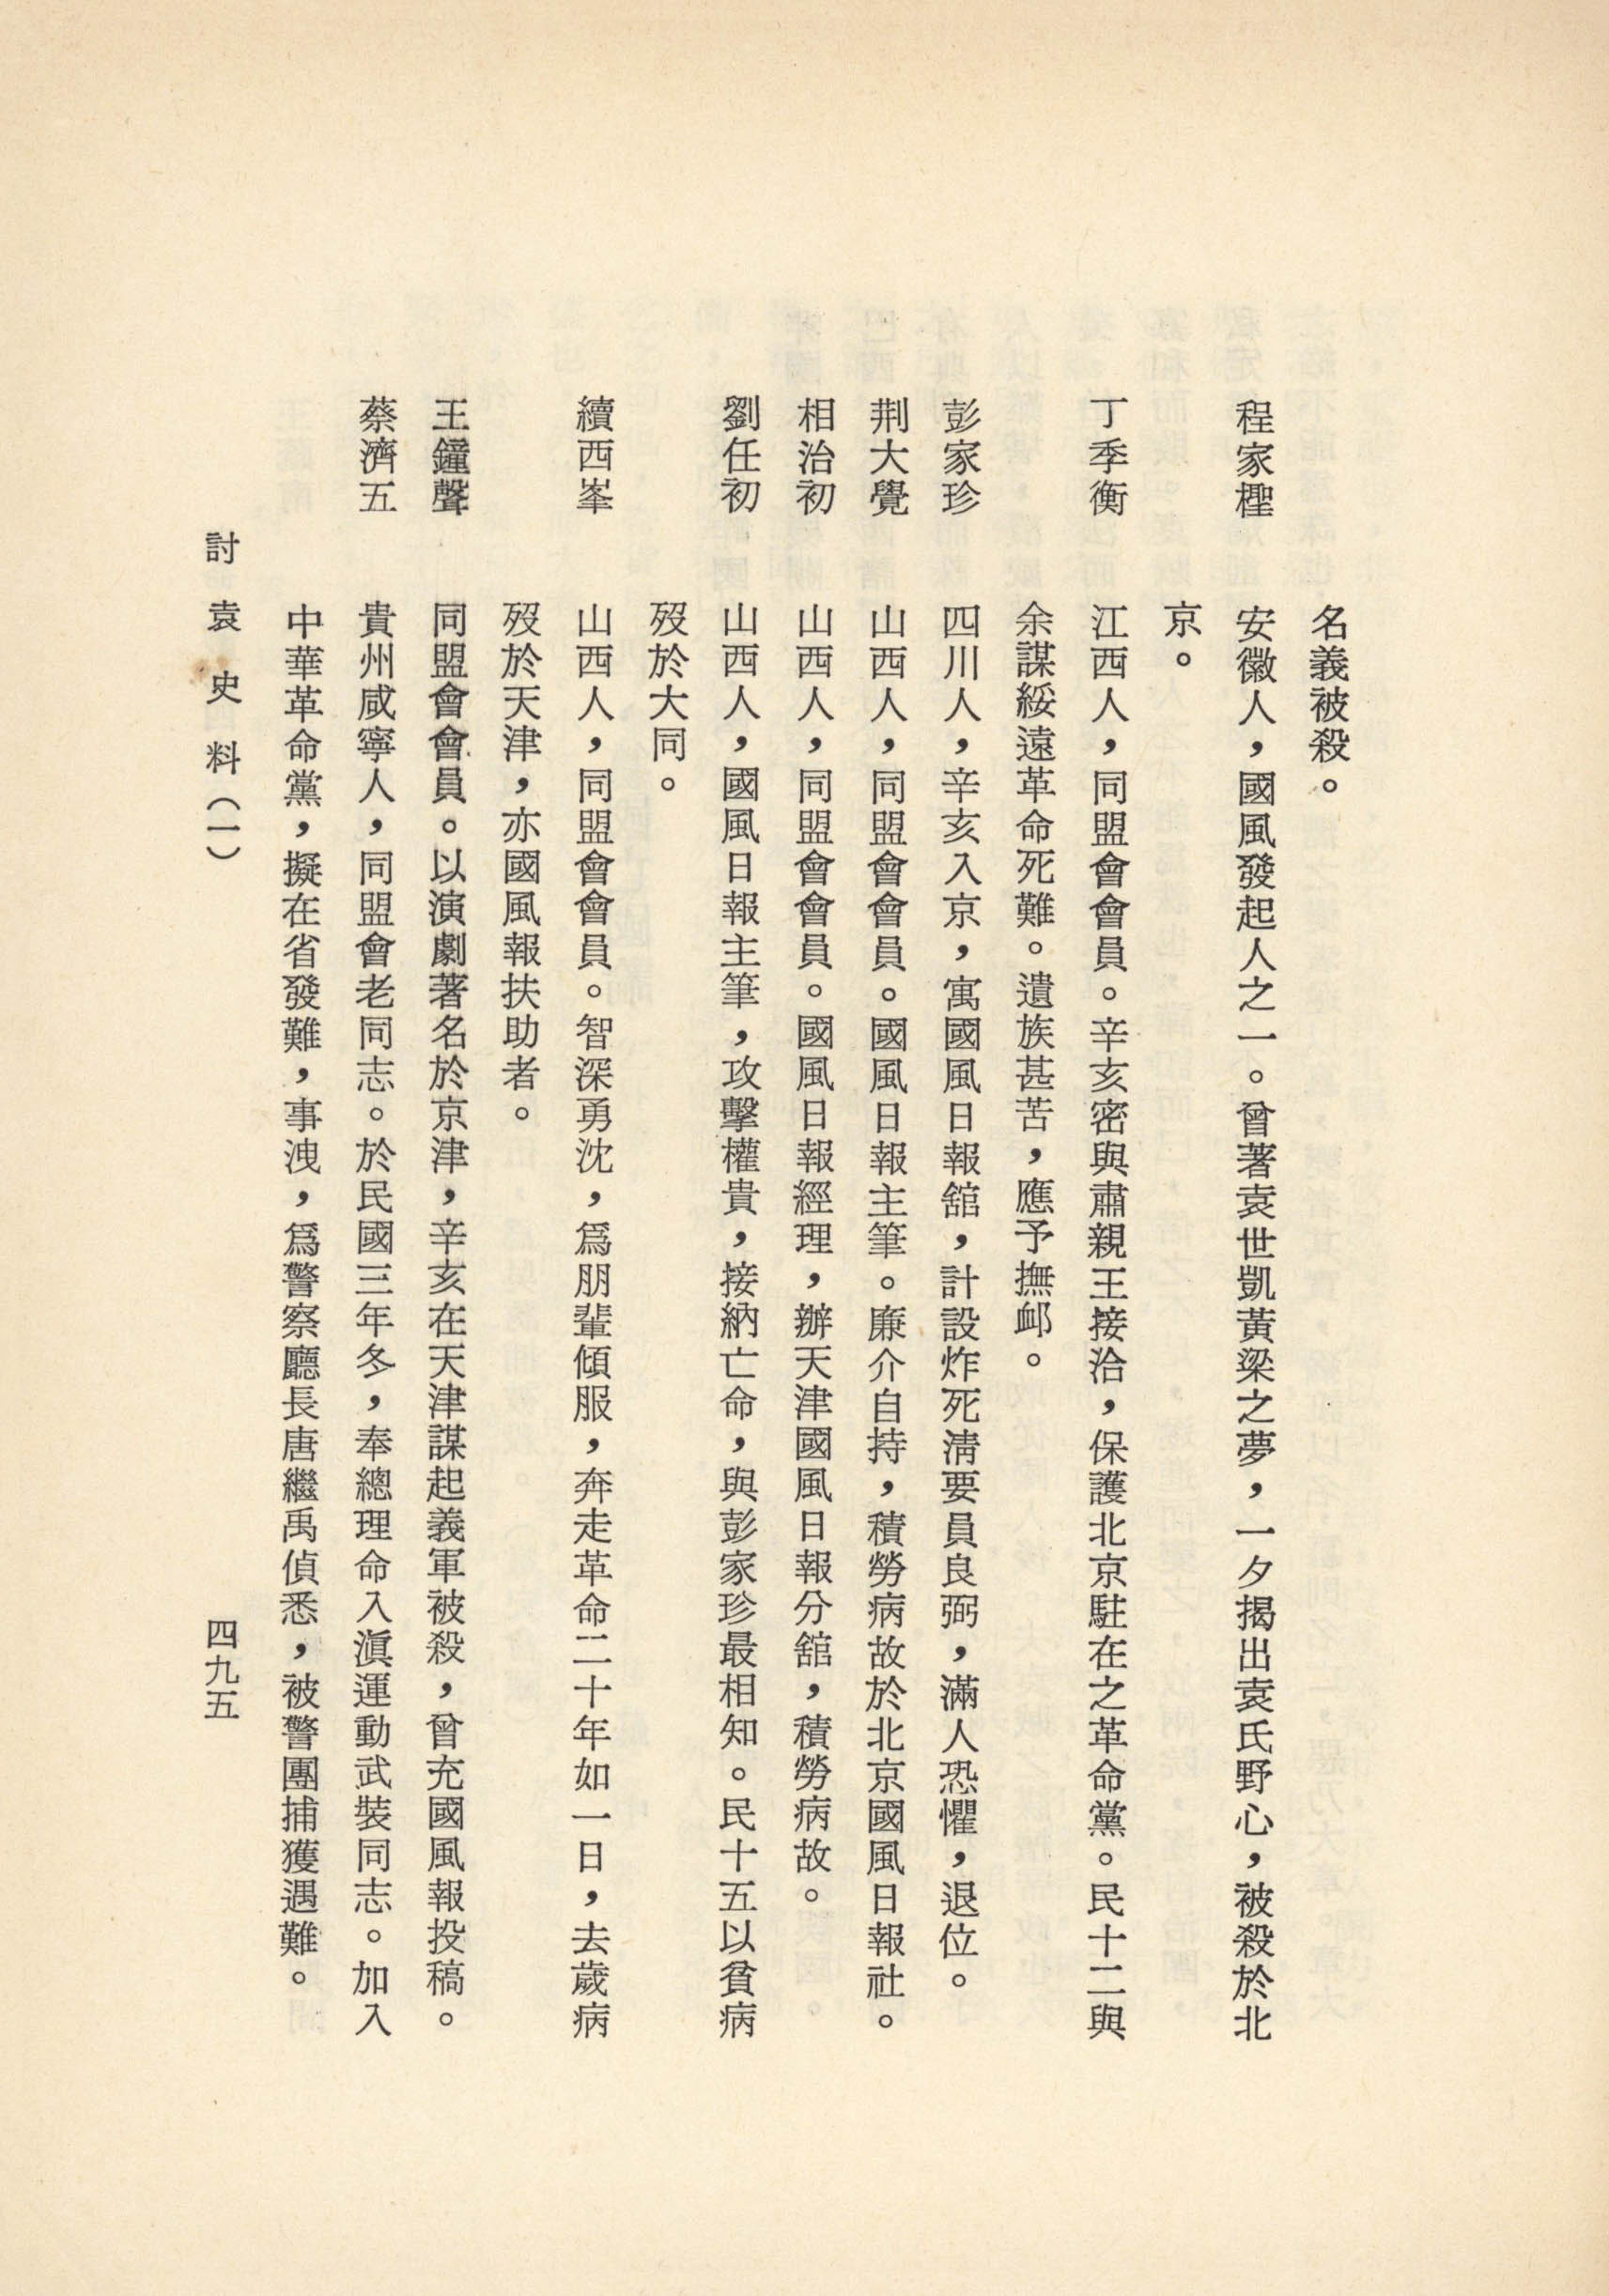 名義被殺。
程家檉　安徽人，國風發起人之一。曾著袁世凱黃梁之夢，一夕揭出袁氏野心，被殺於北
京。
丁季衡　江西人，同盟會會員。辛亥密與肅親王接洽，保護北京駐在之革命黨。民十二與
余謀綏遠革命死難。遺族甚苦，應予撫卹。
彭家珍　四川人，辛亥入京，寓國風日報舘，計設炸死淸要員良弼，滿人恐懼，退位。
荆大覺　山西人，同盟會會員。國風日報主筆。廉介自持，積勞病故於北京國風日報社。
相治初　山西人，同盟會會員。國風日報經理，辦天津國風日報分舘，積勞病故。
劉任初　山西人，國風日報主筆，攻擊權貴，接納亡命，與彭家珍最相知。民十五以貧病
歿於大同。
續西峯　山西人，同盟會會員。智深勇沈，爲朋輩傾服，奔走革命二十年如一日，去歲病
歿於天津，亦國風報扶助者。
王鐘聲　同盟會會員。以演劇著名於京津，辛亥在天津謀起義軍被殺，曾充國風報投稿。
蔡濟五　貴州咸寧人，同盟會老同志。於民國三年冬，奉總理命入滇運動武裝同志。加入
中華革命黨，擬在省發難，事洩，爲警察廳長唐繼禹偵悉，被警團捕獲遇難。
討袁史料（一）　四九五